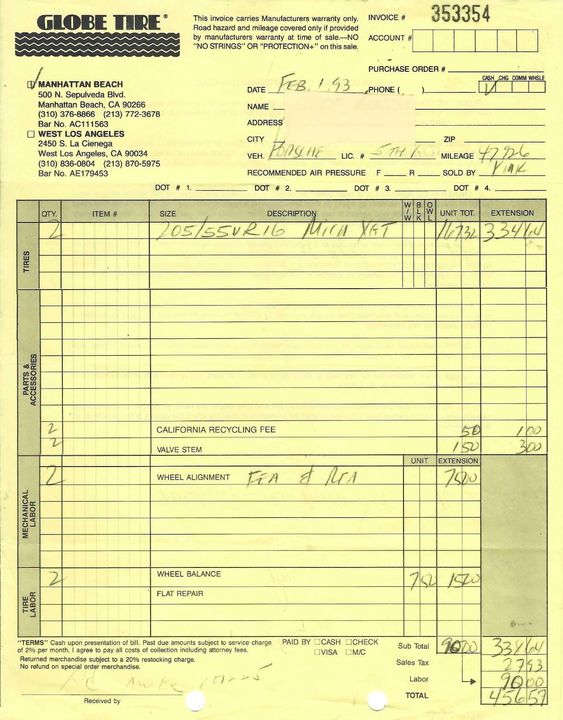 GLOBE TIRE®
This invoice carries Manufacturers warranty only.
Road hazard and mileage covered only if provided
by manufacturers warranty at time of sale.—NO
"NO STRINGS" OR "PROTECTION+" on this sale.
INVOICE # 353354
ACCOUNT #
PURCHASE ORDER #
CASH CHG COMM WHSLE
MANHATTAN BEACH
500 N. Sepulveda Blvd.
Manhattan Beach, CA 90266
(310) 376-8866 (213) 772-3678
Bar No. AC111563
WEST LOS ANGELES
2450 S. La Cienega
West Los Angeles, CA 90034
(310) 836-0804 (213) 870-5975
Bar No. AE179453
DATE FEB. 1, 93 PHONE ( )
NAME
ADDRESS
CITY ZIP
VEH. PORSCHE LIC. # 5TH MILEAGE 47926
RECOMMENDED AIR PRESSURE F R SOLD BY
DOT # 1. DOT # 2. DOT # 3. DOT # 4.
QTY. ITEM # SIZE DESCRIPTION W/W BLK OWL UNIT TOT. EXTENSION
TIRES
2 205/55VR16 MICH XGT 167 32 334 64
PARTS & ACCESSORIES
2 CALIFORNIA RECYCLING FEE 50 1 00
2 VALVE STEM 1 50 3 00
UNIT EXTENSION
MECHANICAL LABOR
2 WHEEL ALIGNMENT FEA & REA 75 00
TIRE LABOR
2 WHEEL BALANCE 7 50 15 00
FLAT REPAIR
"TERMS" Cash upon presentation of bill. Past due amounts subject to service charge
of 2% per month. I agree to pay all costs of collection including attorney fees.
Returned merchandise subject to a 20% restocking charge.
No refund on special order merchandise.
PAID BY CASH CHECK
VISA M/C
Sub Total 90 00 334 64
Sales Tax 27 93
Labor 90 00
TOTAL 456 57
Received by